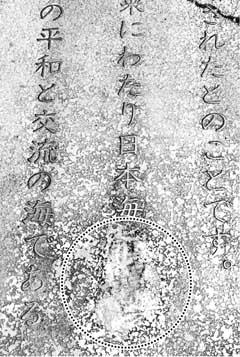 されたとのことです。
来にわたり日本海
の平和と交流の海である